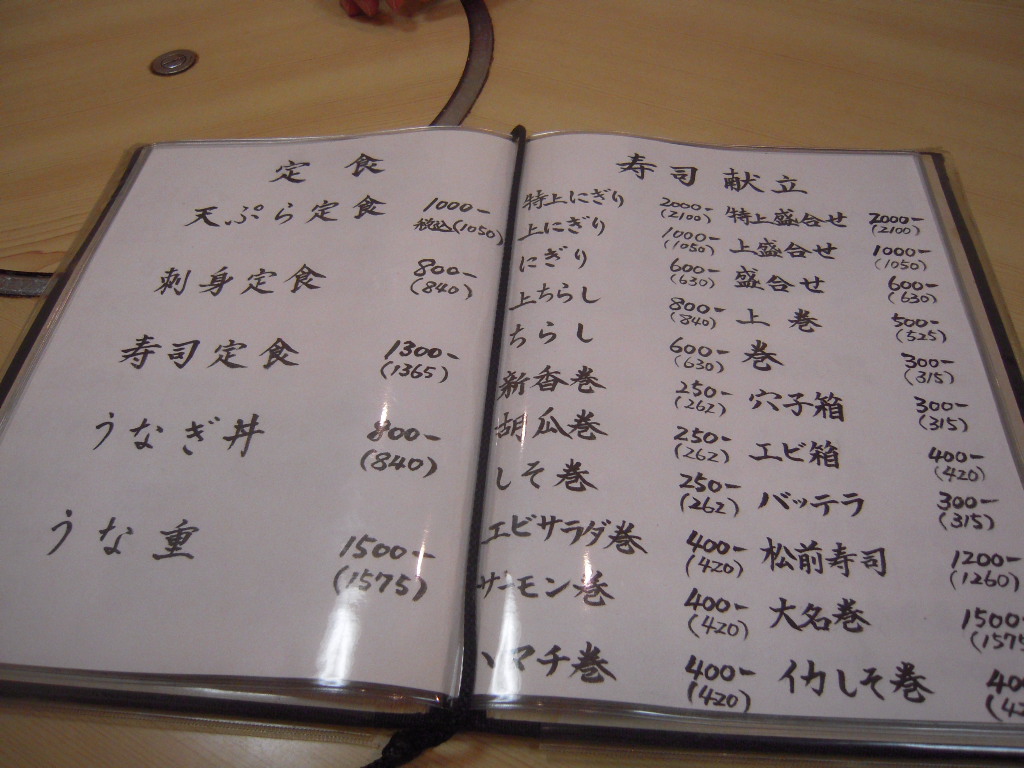 定食
天ぷら定食 1000-
税込(1050)
刺身定食 800-
(840)
寿司定食 1300-
(1365)
うなぎ丼 800-
(840)
うな重 1500-
(1575)
寿司献立
特上にぎり 2000-
(2100)
上にぎり 1000-
(1050)
にぎり 600-
(630)
上ちらし 800-
(840)
ちらし 600-
(630)
新香巻 250-
(262)
胡瓜巻 250-
(262)
しそ巻 250-
(262)
エビサラダ巻 400-
(420)
サーモン巻 400-
(420)
ハマチ巻 400-
(420)
特上盛合せ 2000-
(2100)
上盛合せ 1000-
(1050)
盛合せ 600-
(630)
上巻 500-
(525)
巻 300-
(315)
穴子箱 300-
(315)
エビ箱 400-
(420)
バッテラ 300-
(315)
松前寿司 1200-
(1260)
大名巻 1500-
(1575
イカしそ巻 40
(42